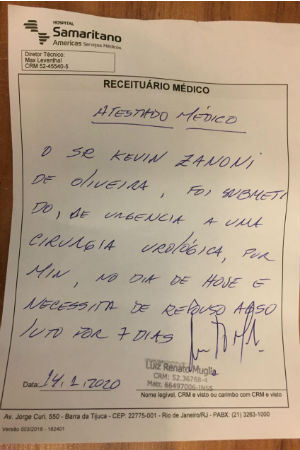 HOSPITAL
Samaritano
Americas Serviços Médicos
Diretor Técnico:
Max Leventhal
CRM 52-45540-5
RECEITUÁRIO MÉDICO
ATESTADO MÉDICO
O SR KEVIN ZANONI
DE OLIVEIRA, FOI SUBMETI
DO, DE URGENCIA A UMA
CIRURGIA UROLÓGICA, POR
MIM, NO DIA DE HOJE E
NECESSITA DE REPOUSO ABSO
LUTO POR 7 DIAS
Luiz Renato Muglia
CRM: 52.36768-4
Matr. 66497006-INSS
Data: 14.1.2020
Nome legível, CRM e visto ou carimbo com CRM e visto
Av. Jorge Curi, 550 - Barra da Tijuca - CEP: 22775-001 - Rio de Janeiro/RJ - PABX: (21) 3263-1000
Versão 003/2018 - 162401